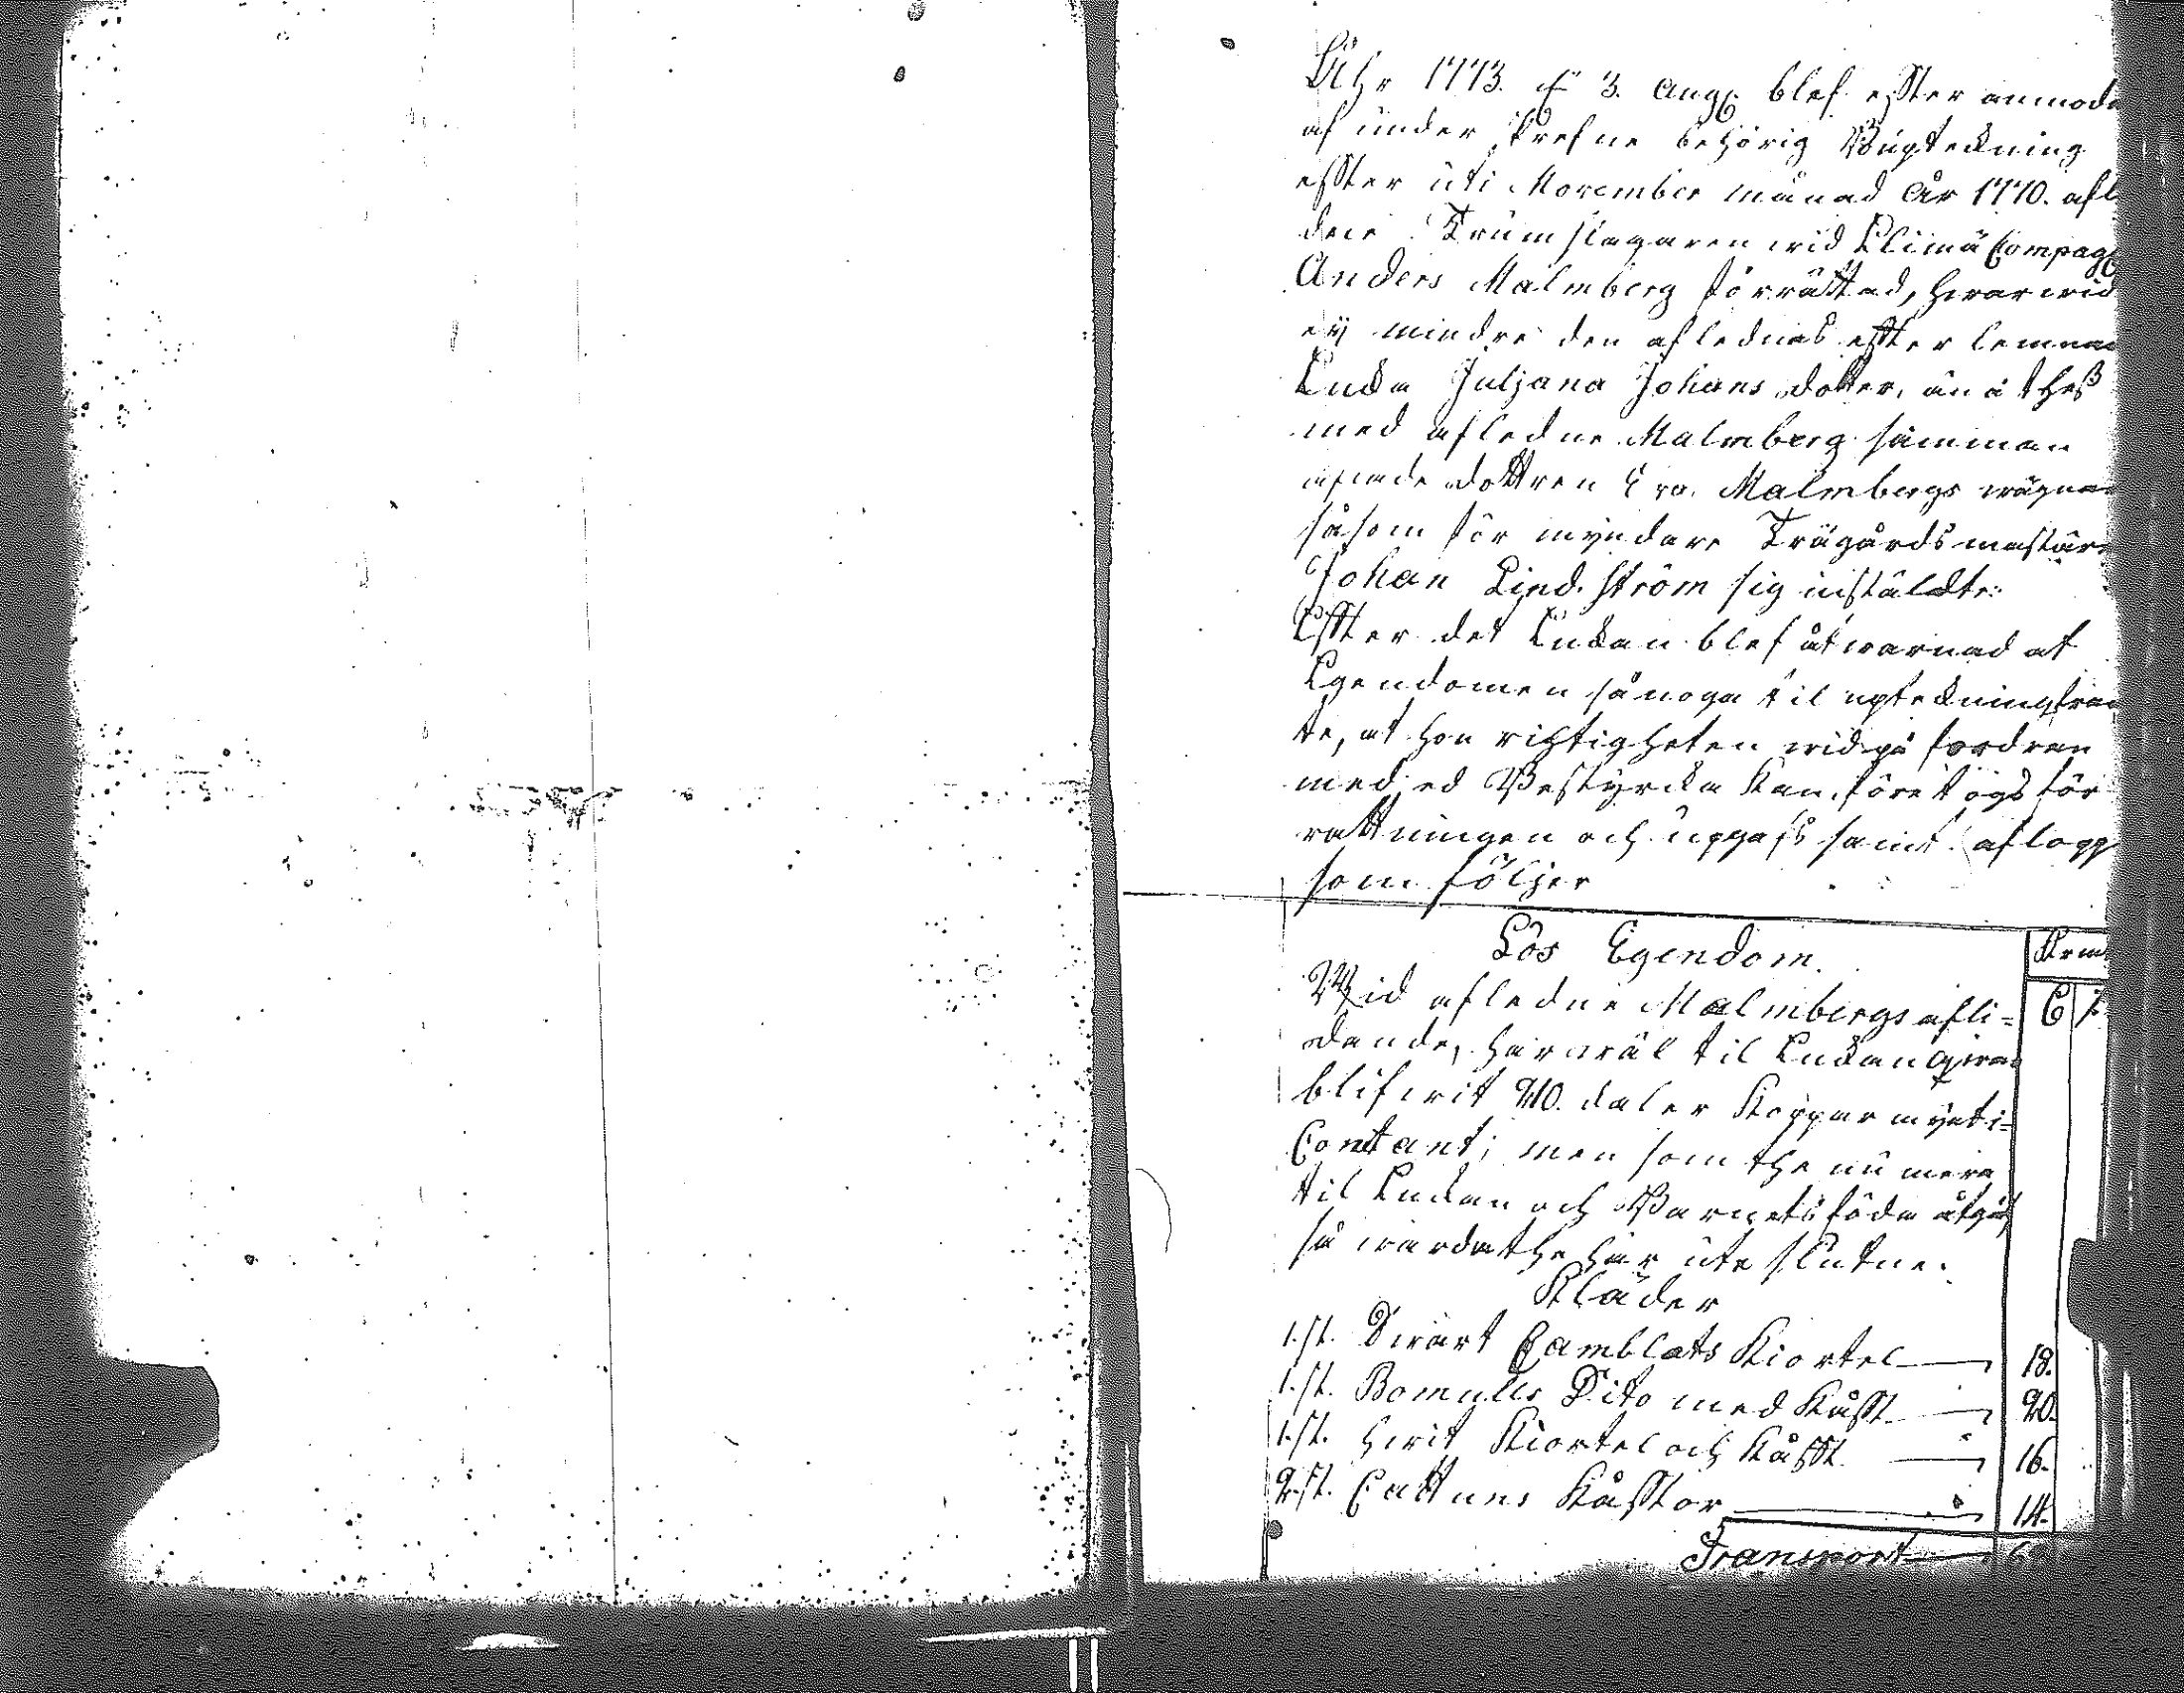 Åhr 1773. d 3. Aug. blef efter anmoda
af under skrefne behörig Bupteckning
effter uti November månad År 1770. afl
dne Trumslagaren wid Elimä Compag
Anders Malmberg förrättad, hwarwid
ey mindre den aflednes effter lemna
Enka Juljana Johans dotter, än å thess
med afledne Malmberg samman
aflade dottren Eva Malmbergs wägna
såsom förmyndare Trägårdsmästar
Johan Lindström sig instälte:
Effter det Enkan blef åtwarnad at
Egendomen så noga til upteckning
te, at hon richtigheten wid påfordran
med ed Bestyrcka kan, företogs för
rättningen och uppgafs samt aflopp
som följer
Lös Egendom.
Wid afledne Malmbergs afli=
dande, har wäl til Enkan qwar
blifwit 20. daler Kopparmynt i
Contant; men som the nu mera
til Enkan och Barnets föda åtgåt
så warda the här uteslutne.
Kläder
1. st. Swart Camblats Kiortel 18.
1. st. Bomulls Dito med Kåfft 20.
1. st. hwit Kiortel och Kåfft 16.
2. st. Cattuns Kåfftor 14.
Transport